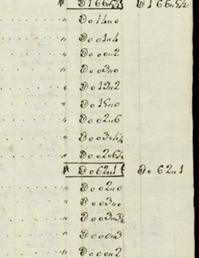 " D 166"5½ D 166"5½
" D o 14"0
" D o 0 1"4
" D o 0 0"2
" D o 0 3"0
" D o 19"2
" D o 15"0
" D o 0 2"6
" D o 0 3"4¼
" D o 0 2"6½
" D o 62"1 D o 62"1
" D o 0 2"0
" D o 0 3"0
" D o 0 3"3¾
" D o 0 0"3
" D o 0 0"2